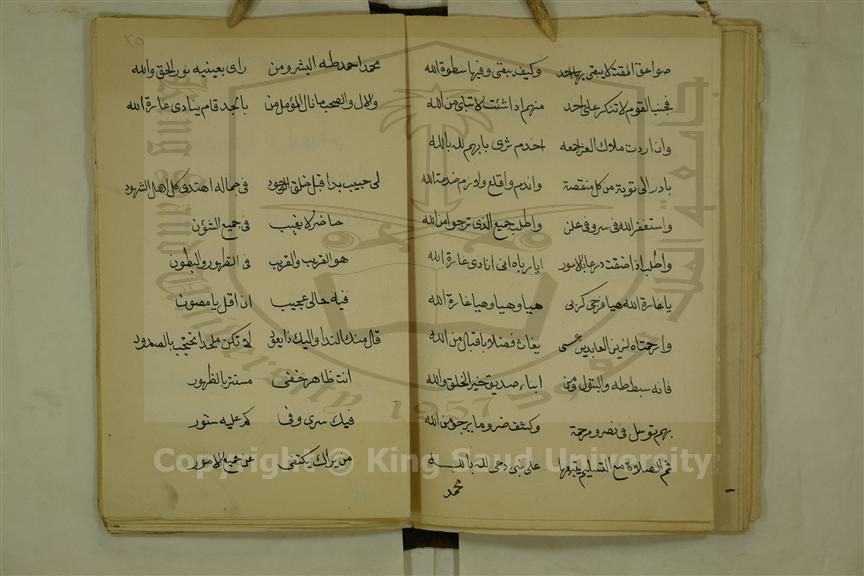 صواعق المقت لا يبقى بها احد وكيف يبقى وفيها سطوة الله
فجنب القوم لا تنكر على احد منهم اذا شئت لا تبلى من الله
وان اردت ملاك العز اجمعه اخدم ثرى بابهم لله بالله
بادر الى توبة من كل منقصة واندم واقلع والزم خدمة الله
واستغفر الله في سر وفي علن واطلب جميع الذي ترجوا من الله
واطلب اذا ضقت ذرعا بالامور ايا رباه اني انادى غارة الله
يا غارة الله هيا فرجي كربي هيا وهيا وهيا غارة الله
وارحمتاه لزين العابدين عسى يغاث فضلا باقبال من الله
فانه سبط طه والبتول ومن ابناء صديق خير الخلق والله
بهم توسل في نصر ومرحمة وكشف ضر وما يرجو من الله
ثم الصلاة مع التسليم يتبعها على نبي دعى لله بالله
محمد
٢٥
محمد احمد طه البشر ومن راى بعينيه نور الحق والله
والال والصحب ما نال المؤمل من بالجد قام ينادى غارة الله
لي حبيب بدا قبل خلق الوجود في جماله اهتدى كل اهل الشهود
حاضر لا يغيب في جميع الشؤن
هو القريب والقريب في الظهور والبطون
فيه حالي عجيب ان اقل يا مصون
قال منك الندا واليك نا يعود لا تكن ملحدا تحتجب بالصدود
انت ظاهر خفي مستتر بالظهور
فيك سرى وفي كم عليه ستور
من يراك يكتفي عن جميع الامور
Copyright © King Saud University
King Saud University
جامعة الملك سعود
1957